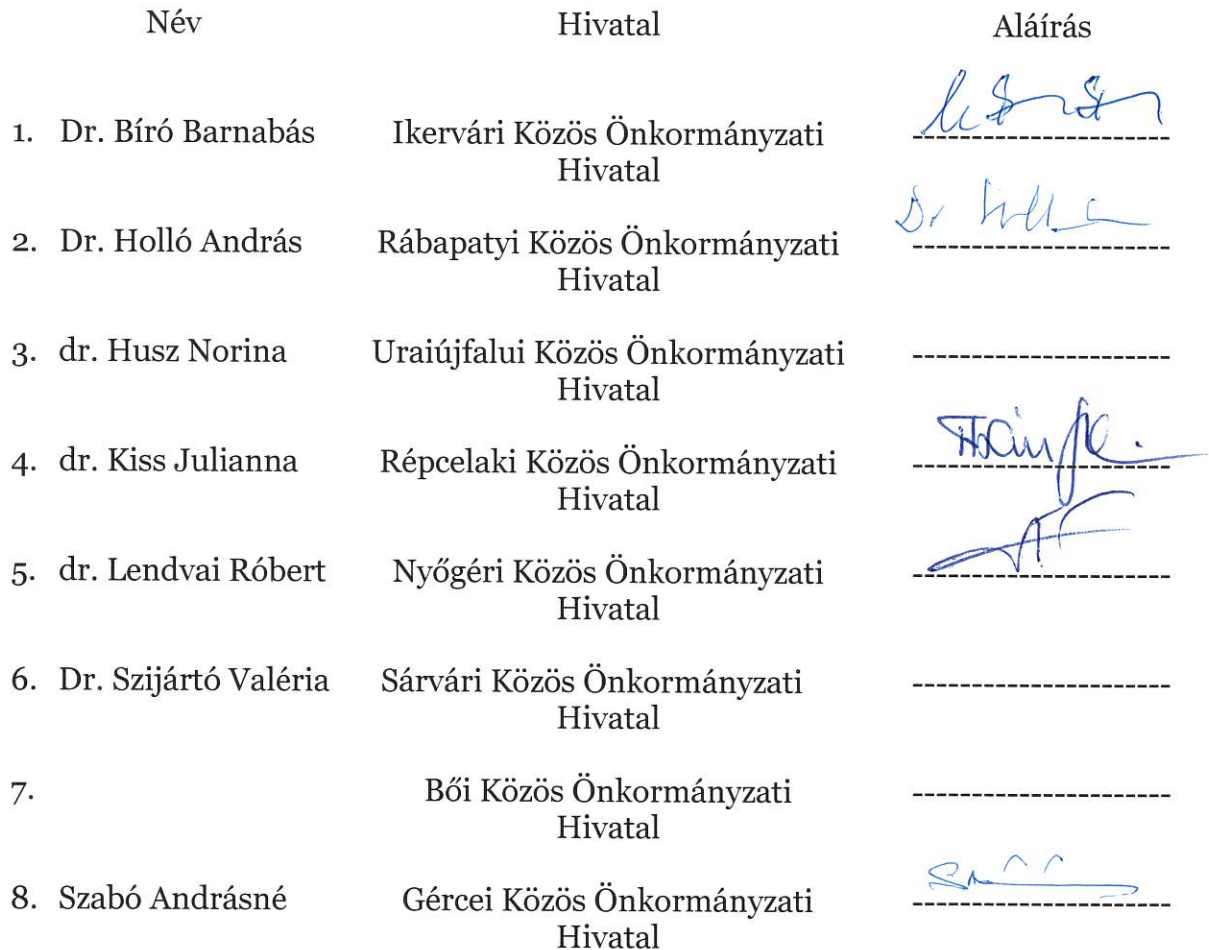 Név Hivatal Aláírás
1. Dr. Bíró Barnabás Ikervári Közös Önkormányzati
Hivatal
Dr
2. Dr. Holló András Rábapatyi Közös Önkormányzati
Hivatal
3. dr. Husz Norina Uraiújfalui Közös Önkormányzati
Hivatal
4. dr. Kiss Julianna Répcelaki Közös Önkormányzati
Hivatal
5. dr. Lendvai Róbert Nyőgéri Közös Önkormányzati
Hivatal
6. Dr. Szijártó Valéria Sárvári Közös Önkormányzati
Hivatal
7. Bői Közös Önkormányzati
Hivatal
8. Szabó Andrásné Gércei Közös Önkormányzati
Hivatal